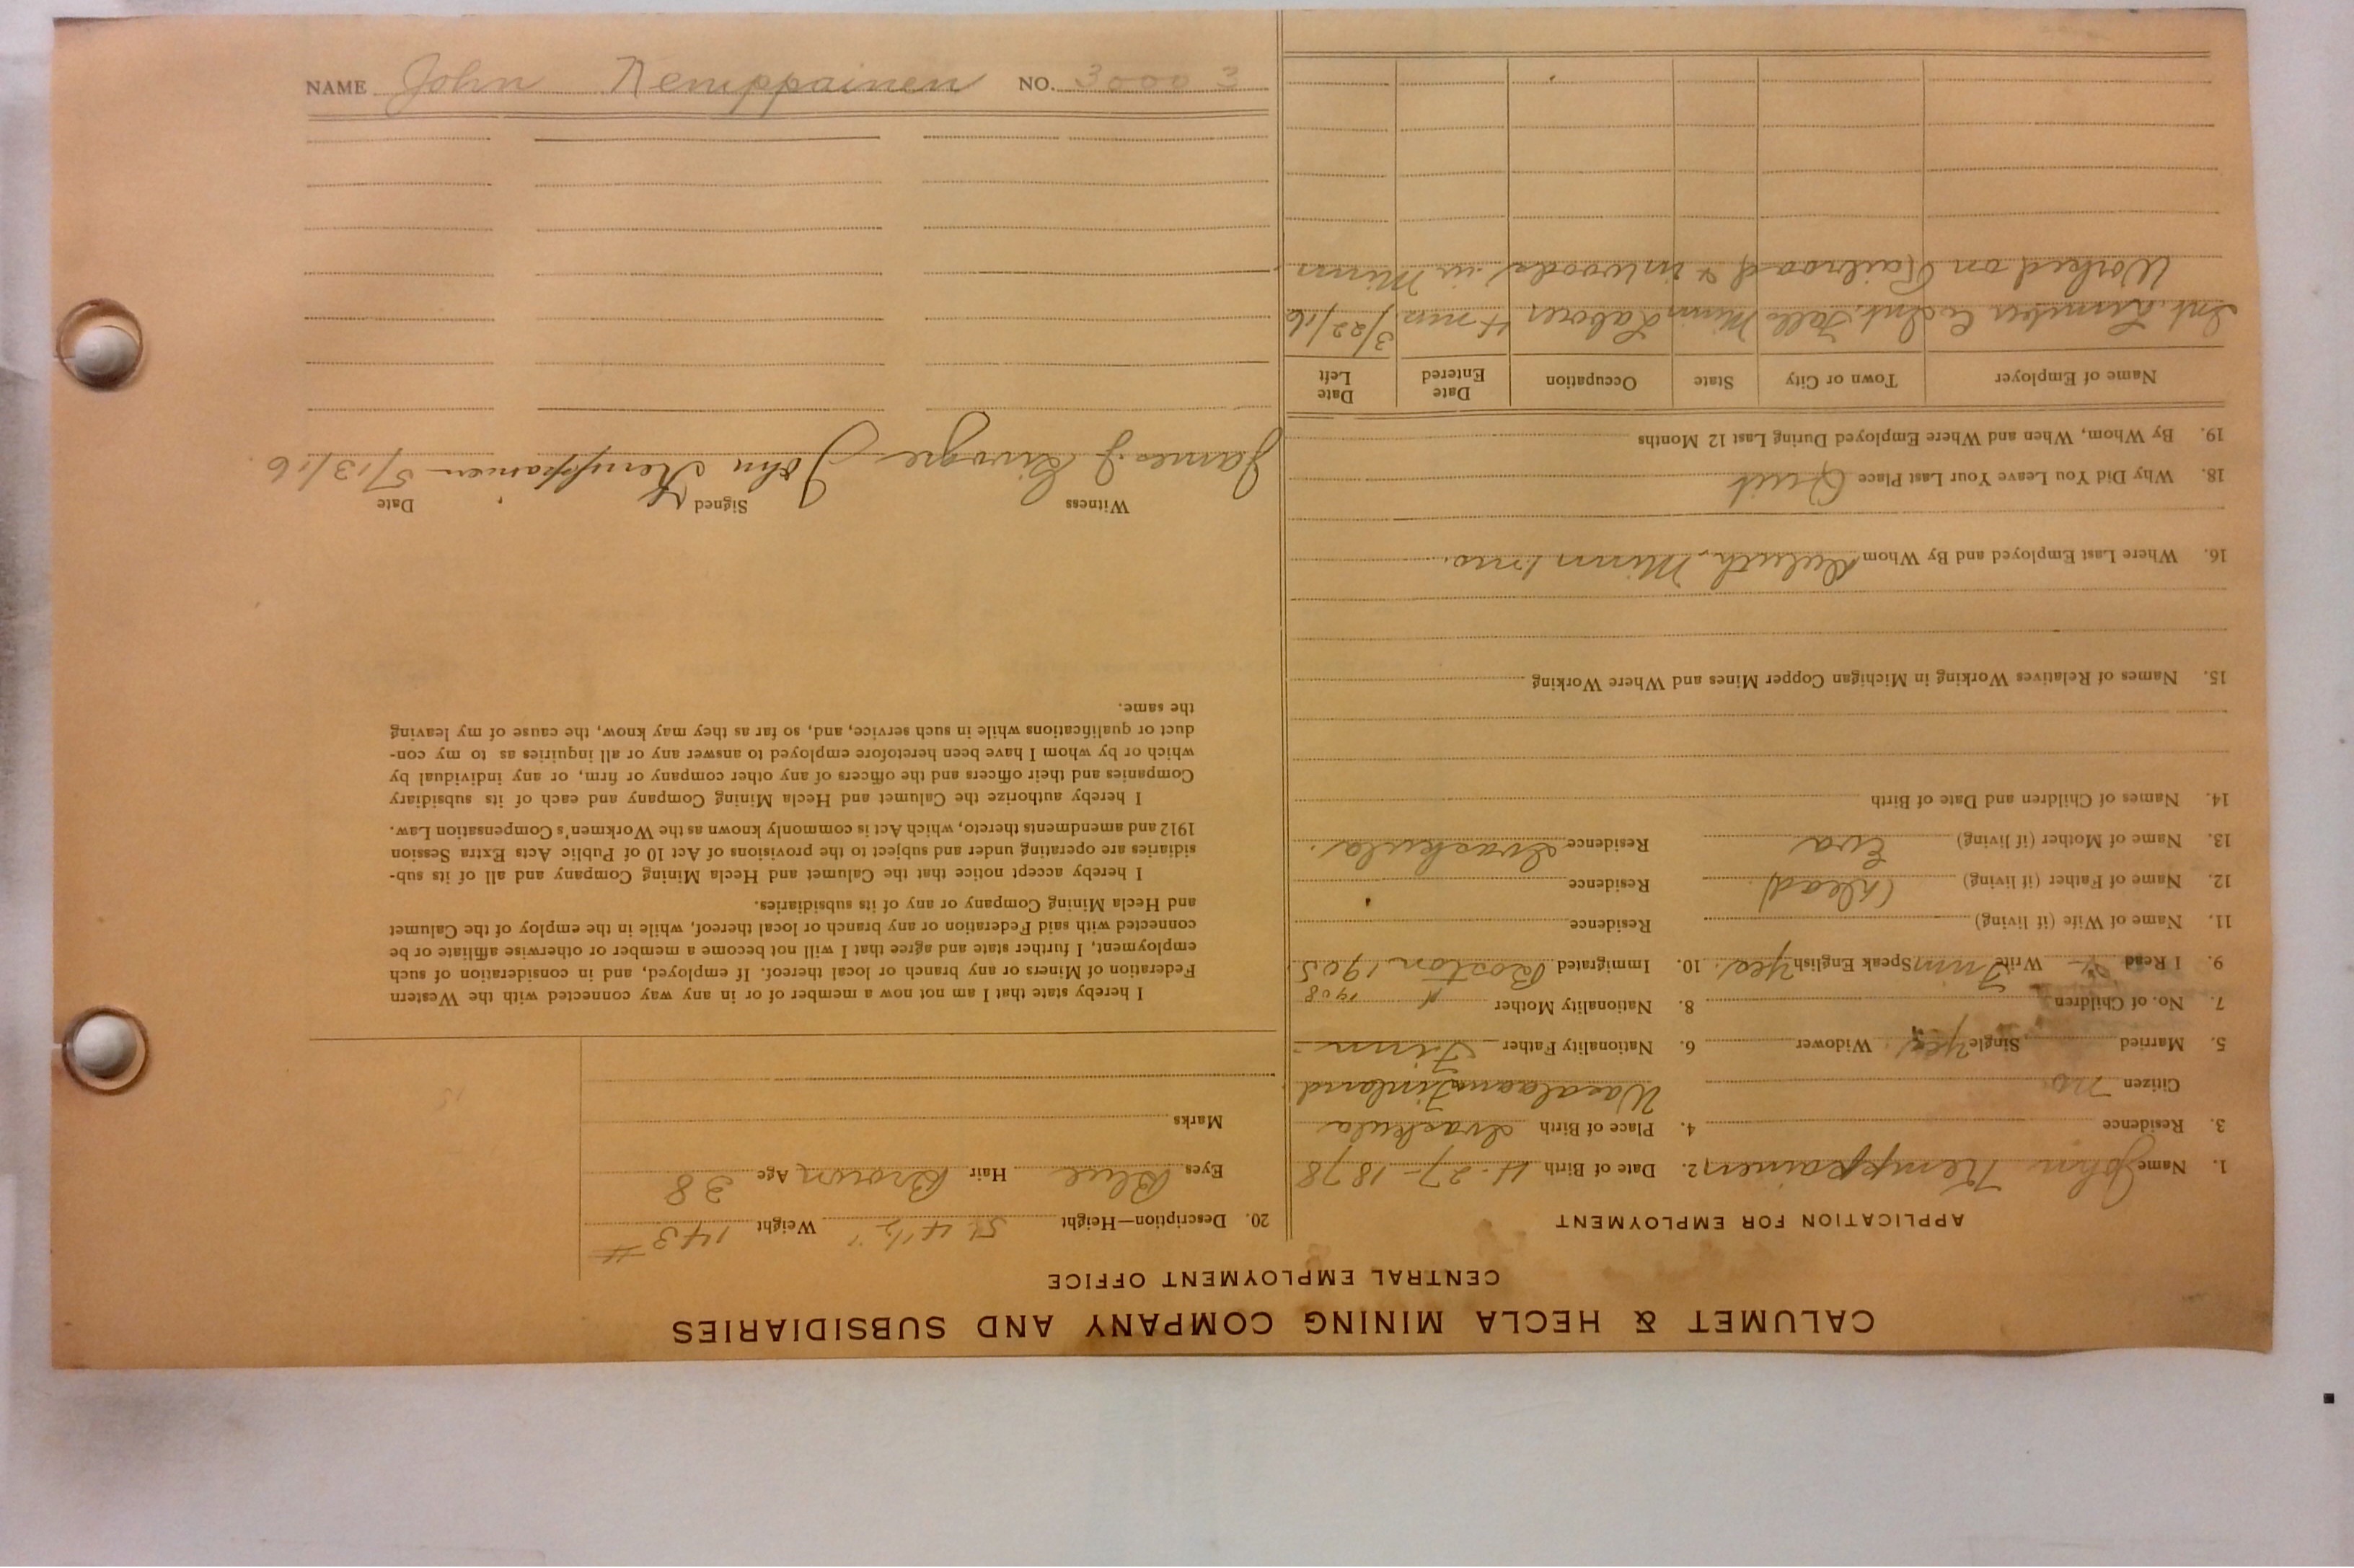 CALUMET & HECLA MINING COMPANY AND SUBSIDIARIES
CENTRAL EMPLOYMENT OFFICE
APPLICATION FOR EMPLOYMENT
1. Name John Kemppainen 2. Date of Birth 4-27-1878
3. Residence 4. Place of Birth Ivaskula
Citizen no Wasalaani Finland
5. Married Single Yes Widower 6. Nationality Father Finn
7. No. of Children 8. Nationality Mother " 1908
9. I Read & Write Finn Speak English Yes. 10. Immigrated Boston 1905
11. Name of Wife (if living) Residence
12. Name of Father (if living) (Dead) Residence
13. Name of Mother (if living) Eva Residence Ivaskula.
14. Names of Children and Date of Birth
15. Names of Relatives Working in Michigan Copper Mines and Where Working
16. Where Last Employed and By Whom Duluth, Minn 1 mo.
18. Why Did You Leave Your Last Place Quit
19. By Whom, When and Where Employed During Last 12 Months
Name of Employer Town or City State Occupation Date Entered Date Left
Int. Lumber Co Int. Falls Minn Laborer 4 mos 3/22/16
Worked on Railroad & in woods in Minn
20. Description—Height 5' 4 1/2" Weight 143 #
Eyes Blue Hair Brown Age 38
Marks
I hereby state that I am not now a member of or in any way connected with the Western
Federation of Miners or any branch or local thereof. If employed, and in consideration of such
employment, I further state and agree that I will not become a member or otherwise affiliate or be
connected with said Federation or any branch or local thereof, while in the employ of the Calumet
and Hecla Mining Company or any of its subsidiaries.
I hereby accept notice that the Calumet and Hecla Mining Company and all of its sub-
sidiaries are operating under and subject to the provisions of Act 10 of Public Acts Extra Session
1912 and amendments thereto, which Act is commonly known as the Workmen's Compensation Law.
I hereby authorize the Calumet and Hecla Mining Company and each of its subsidiary
Companies and their officers and the officers of any other company or firm, or any individual by
which or by whom I have been heretofore employed to answer any or all inquiries as to my con-
duct or qualifications while in such service, and, so far as they may know, the cause of my leaving
the same.
Witness Signed Date
James J John Kemppainen 5/13/16
NAME John Kemppainen NO. 30003